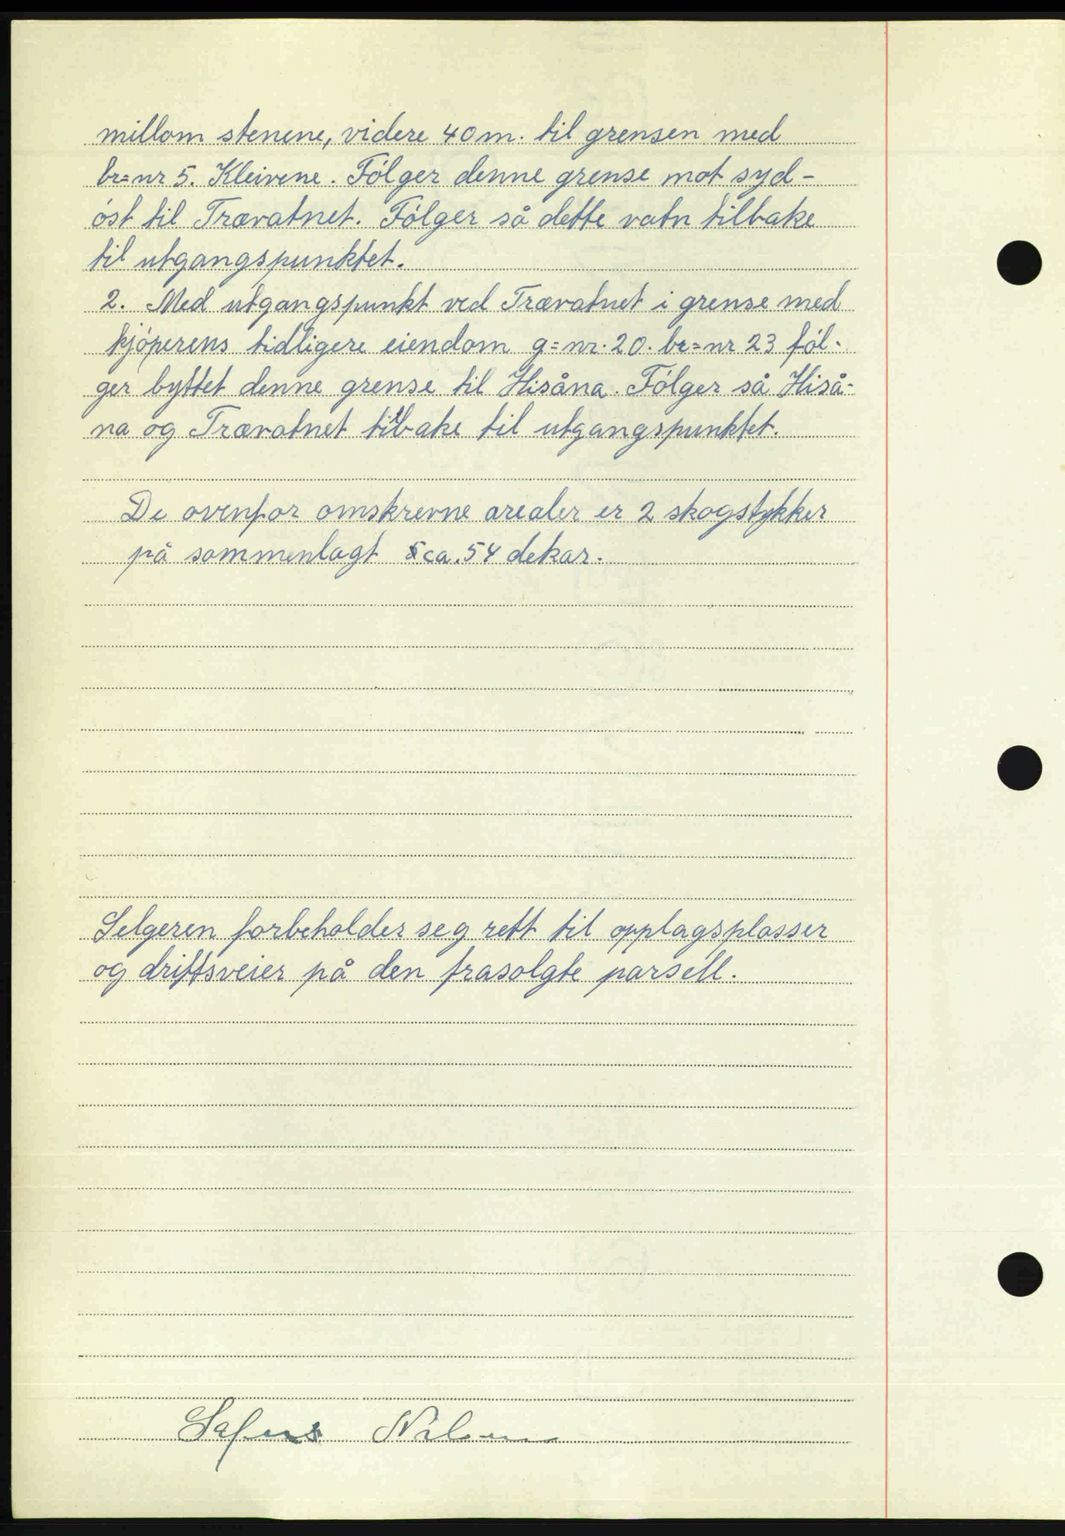 millom stenene, videre 40 m. til grensen med
br=nr 5. Kleivene. Fólger denne grense mot syd-
óst til Trævatnet. Fólger så dette vatn tilbake
til utgangspunktet.
2. Med utgangspunkt ved Trævatnet i grense med
kjóperens tidligere eiendom g=nr. 20. br=nr 23 fól-
ger byttet denne grense til Hisåna. Fólger så Hiså-
na og Trævatnet tilbake til utgangspunktet.
De ovenfor omskrevne arealer er 2 skogstykker
på sammenlagt ca. 54 dekar.
Selgeren forbeholder seg rett til opplagsplasser
og driftsveier på den frasolgte parsell.